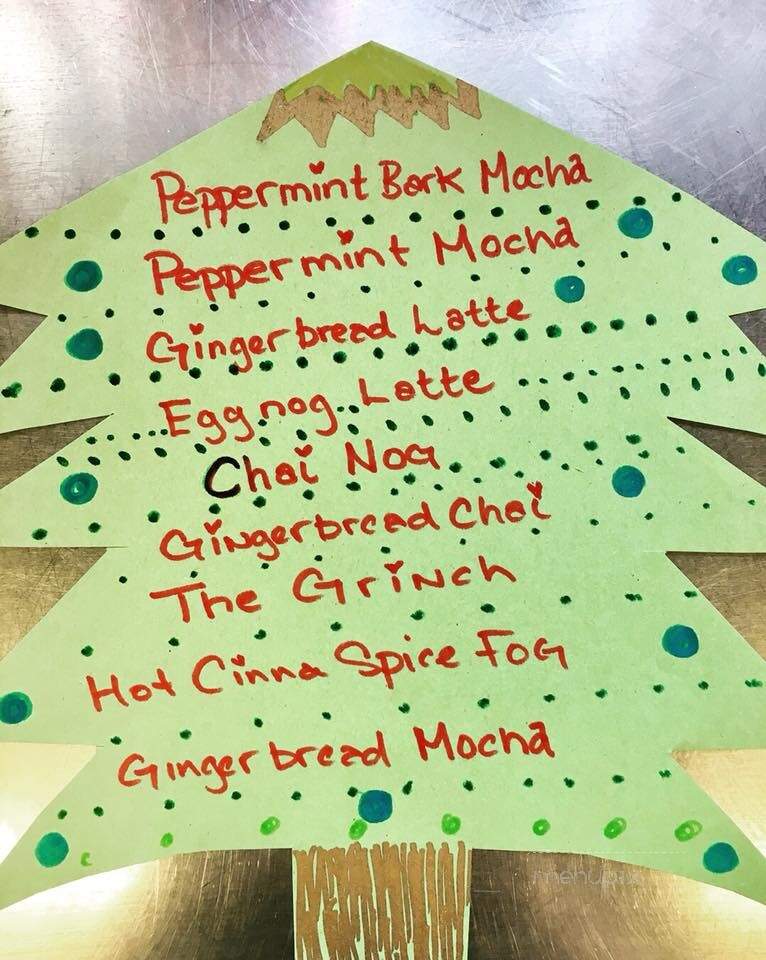 Peppermint Bark Mocha
Peppermint Mocha
Gingerbread Latte
Eggnog Latte
Chai Nog
Gingerbread Chai
The Grinch
Hot Cinna Spice Fog
Gingerbread Mocha
menupix